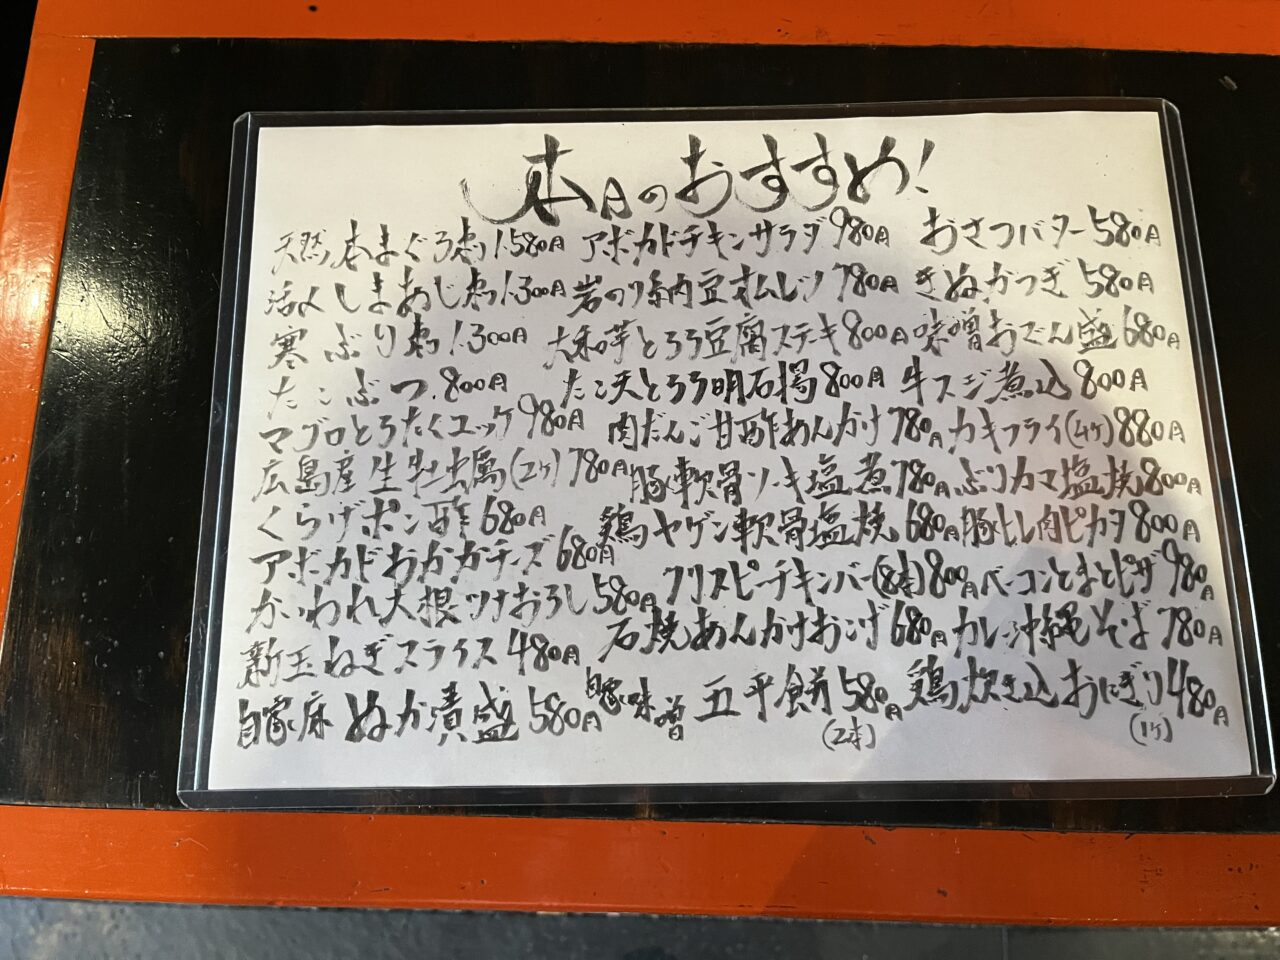 本日のおすすめ!
天然本まぐろ刺1.580円 アボカドチキンサラダ980円 おさつバター580円
活〆しまあじ刺1.300円 岩のり納豆オムレツ780円 きぬかつぎ580円
寒ぶり刺1.300円 大和芋とろろ豆腐ステーキ800円 味噌おでん盛680円
たこぶつ.800円 たこ天とろろ明石揚800円 牛スジ煮込800円
マグロとろたくユッケ980円 肉だんご甘酢あんかけ780円 カキフライ(4ケ)880円
広島産生牡蠣(2ケ)780円 豚軟骨ソーキ塩煮780円 ぶりカマ塩焼800円
くらげポン酢680円 鶏ヤゲン軟骨塩焼680円 豚ヒレ肉ピカタ800円
アボカドおかかチーズ680円 クリスピーチキンバー(8本)800円 ベーコンとまとピザ980円
かいわれ大根ツナおろし580円 石焼あんかけおこげ680円 カレー沖縄そば780円
新玉ねぎスライス480円 自家味噌五平餅580円(2本) 鶏炊き込おにぎり480円(1ケ)
自家床ぬか漬盛580円